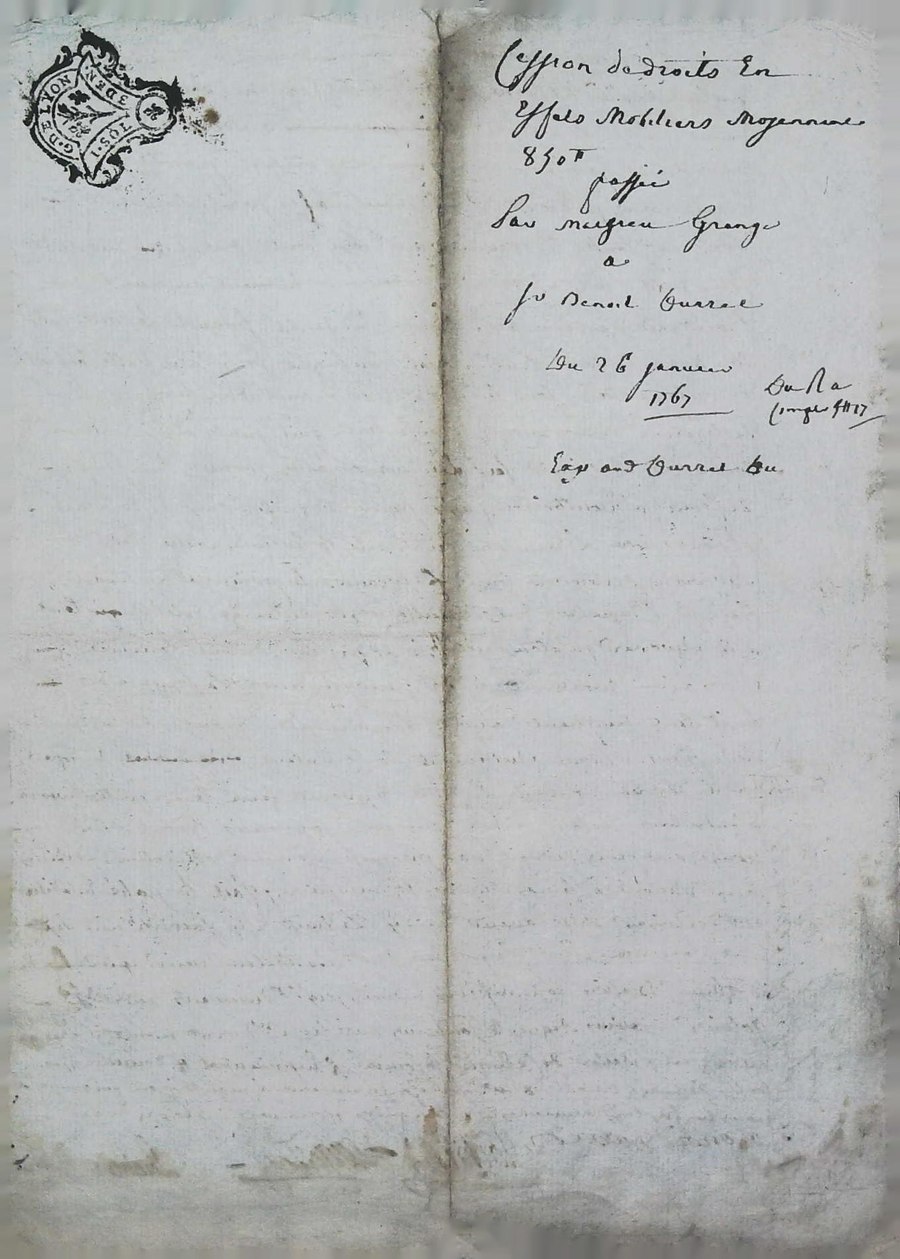 G. DE LYON
1 SOL
3 DEN.
Cession de droits En
Effets Mobiliers Moyennant
850 ₶
passée
Par Mathieu Grange
a
Sr Benoit Durret
Du 26 janvier
1767
Exp and Durret Du